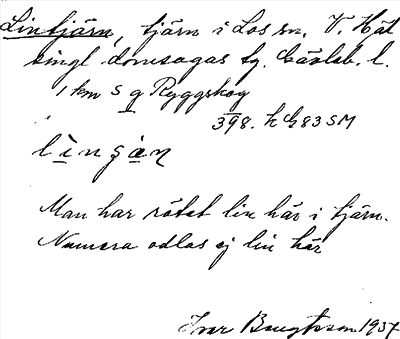 Lintjärn, tjärn i Los sn, V. Häl
singl domsagas tg. Gävleb. l.
1 km S g Ryggskog
398. h G83 SM
lìngàn
Man har rötat lin här i tjärn.
Numera odlas ej lin här
Ivar Bengtsson 1937